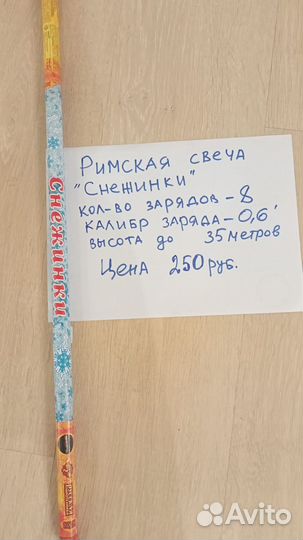 Римская свеча
"Снежинки"
кол-во зарядов - 8
калибр заряда - 0,6'
высота до 35 метров
Цена 250 руб.
Снежинки
Avito